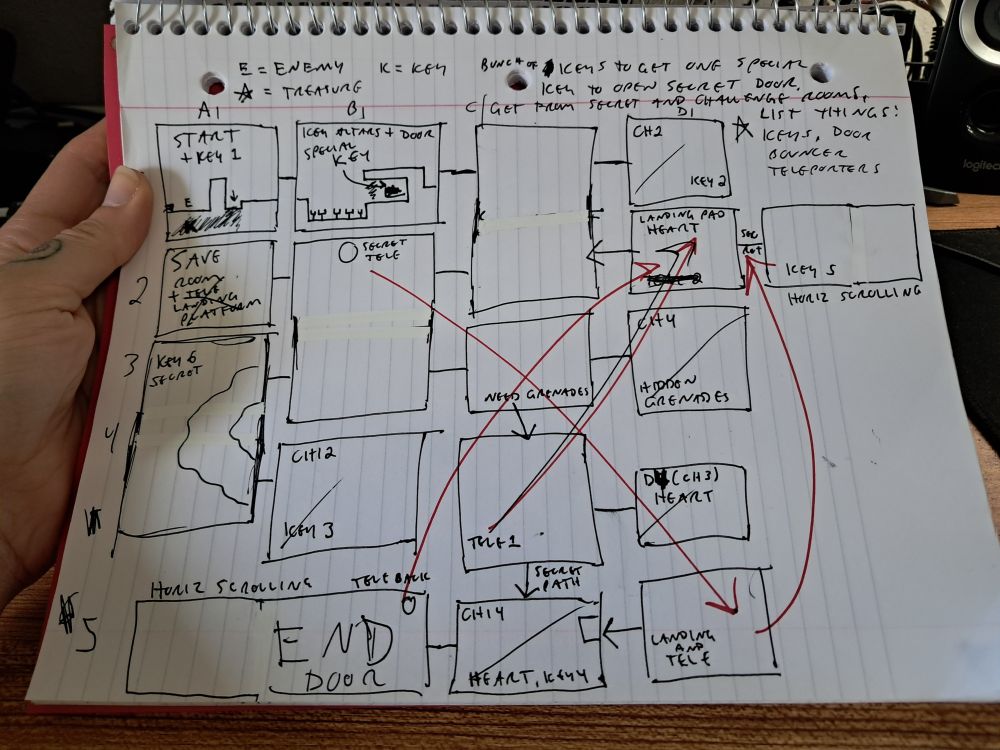 E = ENEMY K = KEY
☆ = TREASURE
BUNCH OF KEYS TO GET ONE SPECIAL
KEY TO OPEN SECRET DOOR.
GET FROM SECRET AND CHALLENGE ROOMS.
☆ LIST THINGS:
KEYS, DOOR
BOUNCER
TELEPORTERS
logitech
A1
B1
C1
D1
START
+ KEY 1
E
KEY ALTARS + DOOR
SPECIAL
KEY
K
CH2
KEY 2
2
SAVE
ROOM
+ TELE
LANDING
PLATFORM
SECRET
TELE
LANDING PAD
HEART
SEC
RET
KEY 5
HORIZ SCROLLING
3
KEY 6
SECRET
NEED GRENADES
CH4
HIDDEN
GRENADES
4
CH12
KEY 3
TELE 1
(CH3)
HEART
HORIZ SCROLLING
TELE BACK
SECRET
PATH
5
END
DOOR
CH14
E
HEART, KEY 4
LANDING
AND
TELE